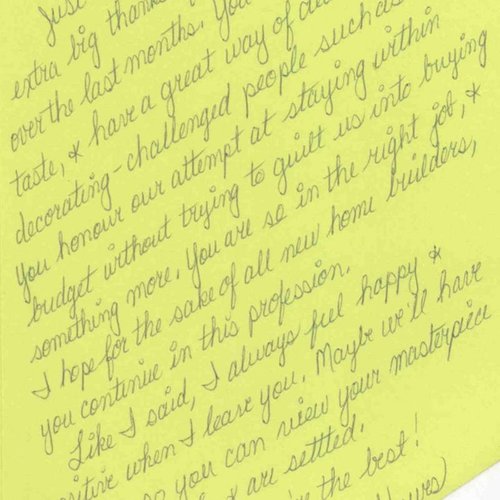 Just
extra big thanks
over the last months. You
taste, & have a great way of
decorating-challenged people such as
you honour our attempt at staying within
budget without trying to guilt us into buying
something more. You are so in the right job, &
I hope for the sake of all new home builders,
you continue in this profession.
Like I said, I always feel happy &
positive when I leave you. Maybe we'll have
so you can view your masterpiece
& are settled.
the best!